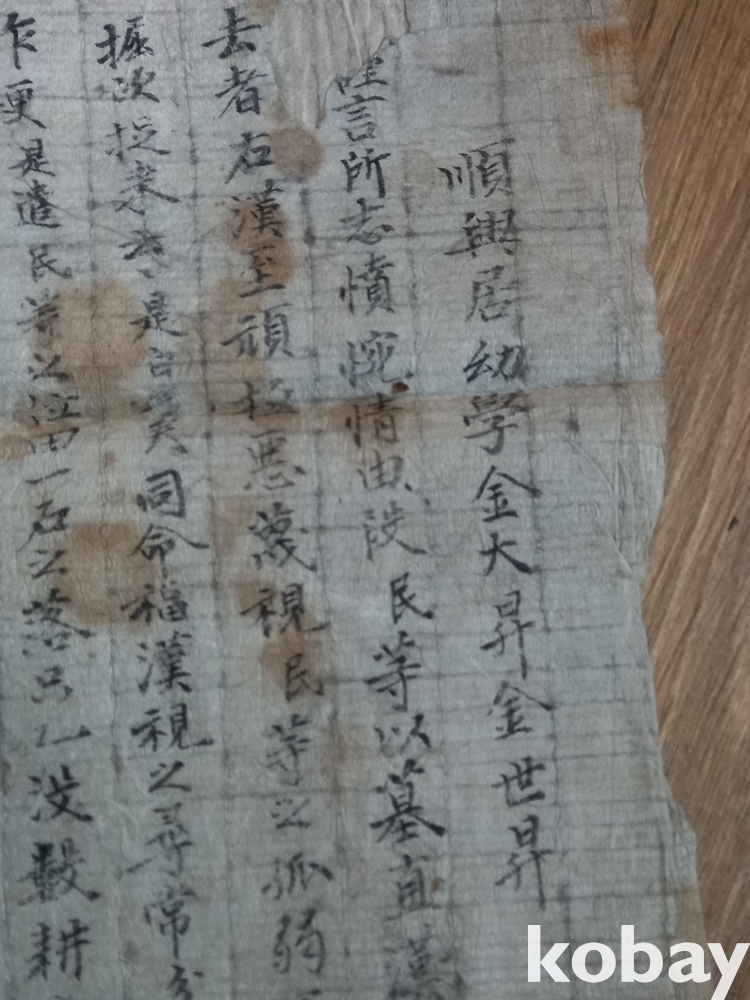 順興居幼學金大昇金世昇
言所志憤惋情由段民等以墓直漢
去者右漢至頑極惡蔑視民等之孤弱
掘次捉來 是白 同命福漢視之尋常
乍更是遣民等之 田一石之落只 没數耕
kobay